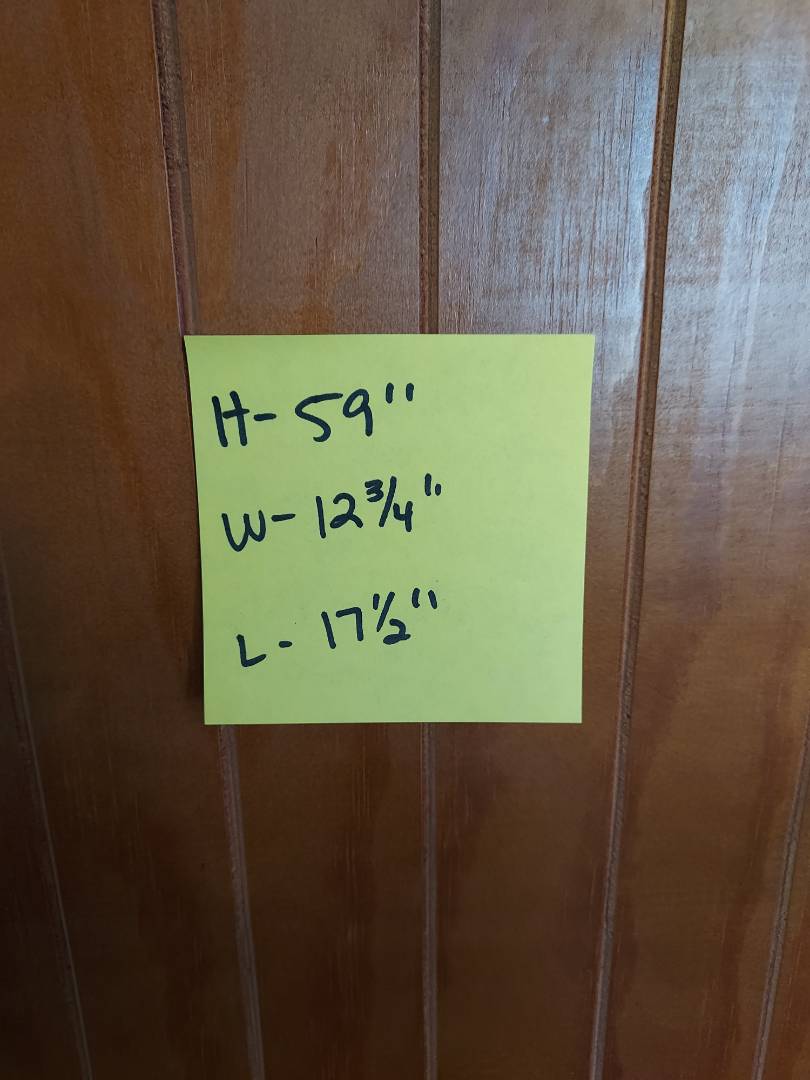 H- 59"
W- 12 3/4"
L- 17 1/2"